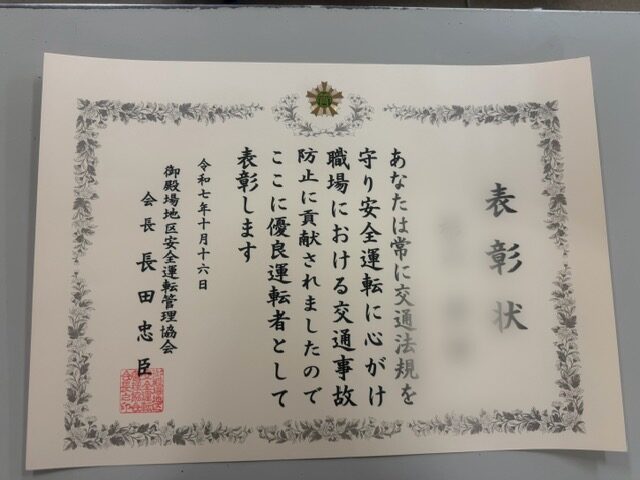 表彰状
あなたは常に交通法規を
守り安全運転に心がけ
職場における交通事故
防止に貢献されましたので
ここに優良運転者として
表彰します
令和七年十月十六日
御殿場地区安全運転管理協会
会長 長田忠臣